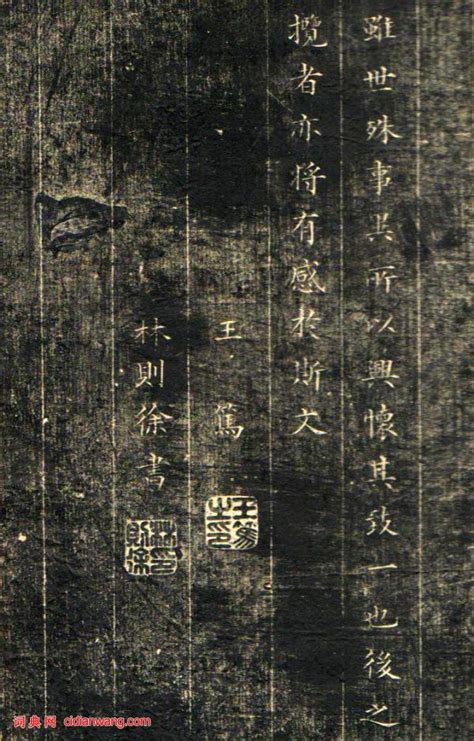 雖世殊事異所以興懷其致一也後之
攬者亦將有感於斯文
王篤
王篤之印
林則徐書
林則徐印
词典网 cidianwang.com